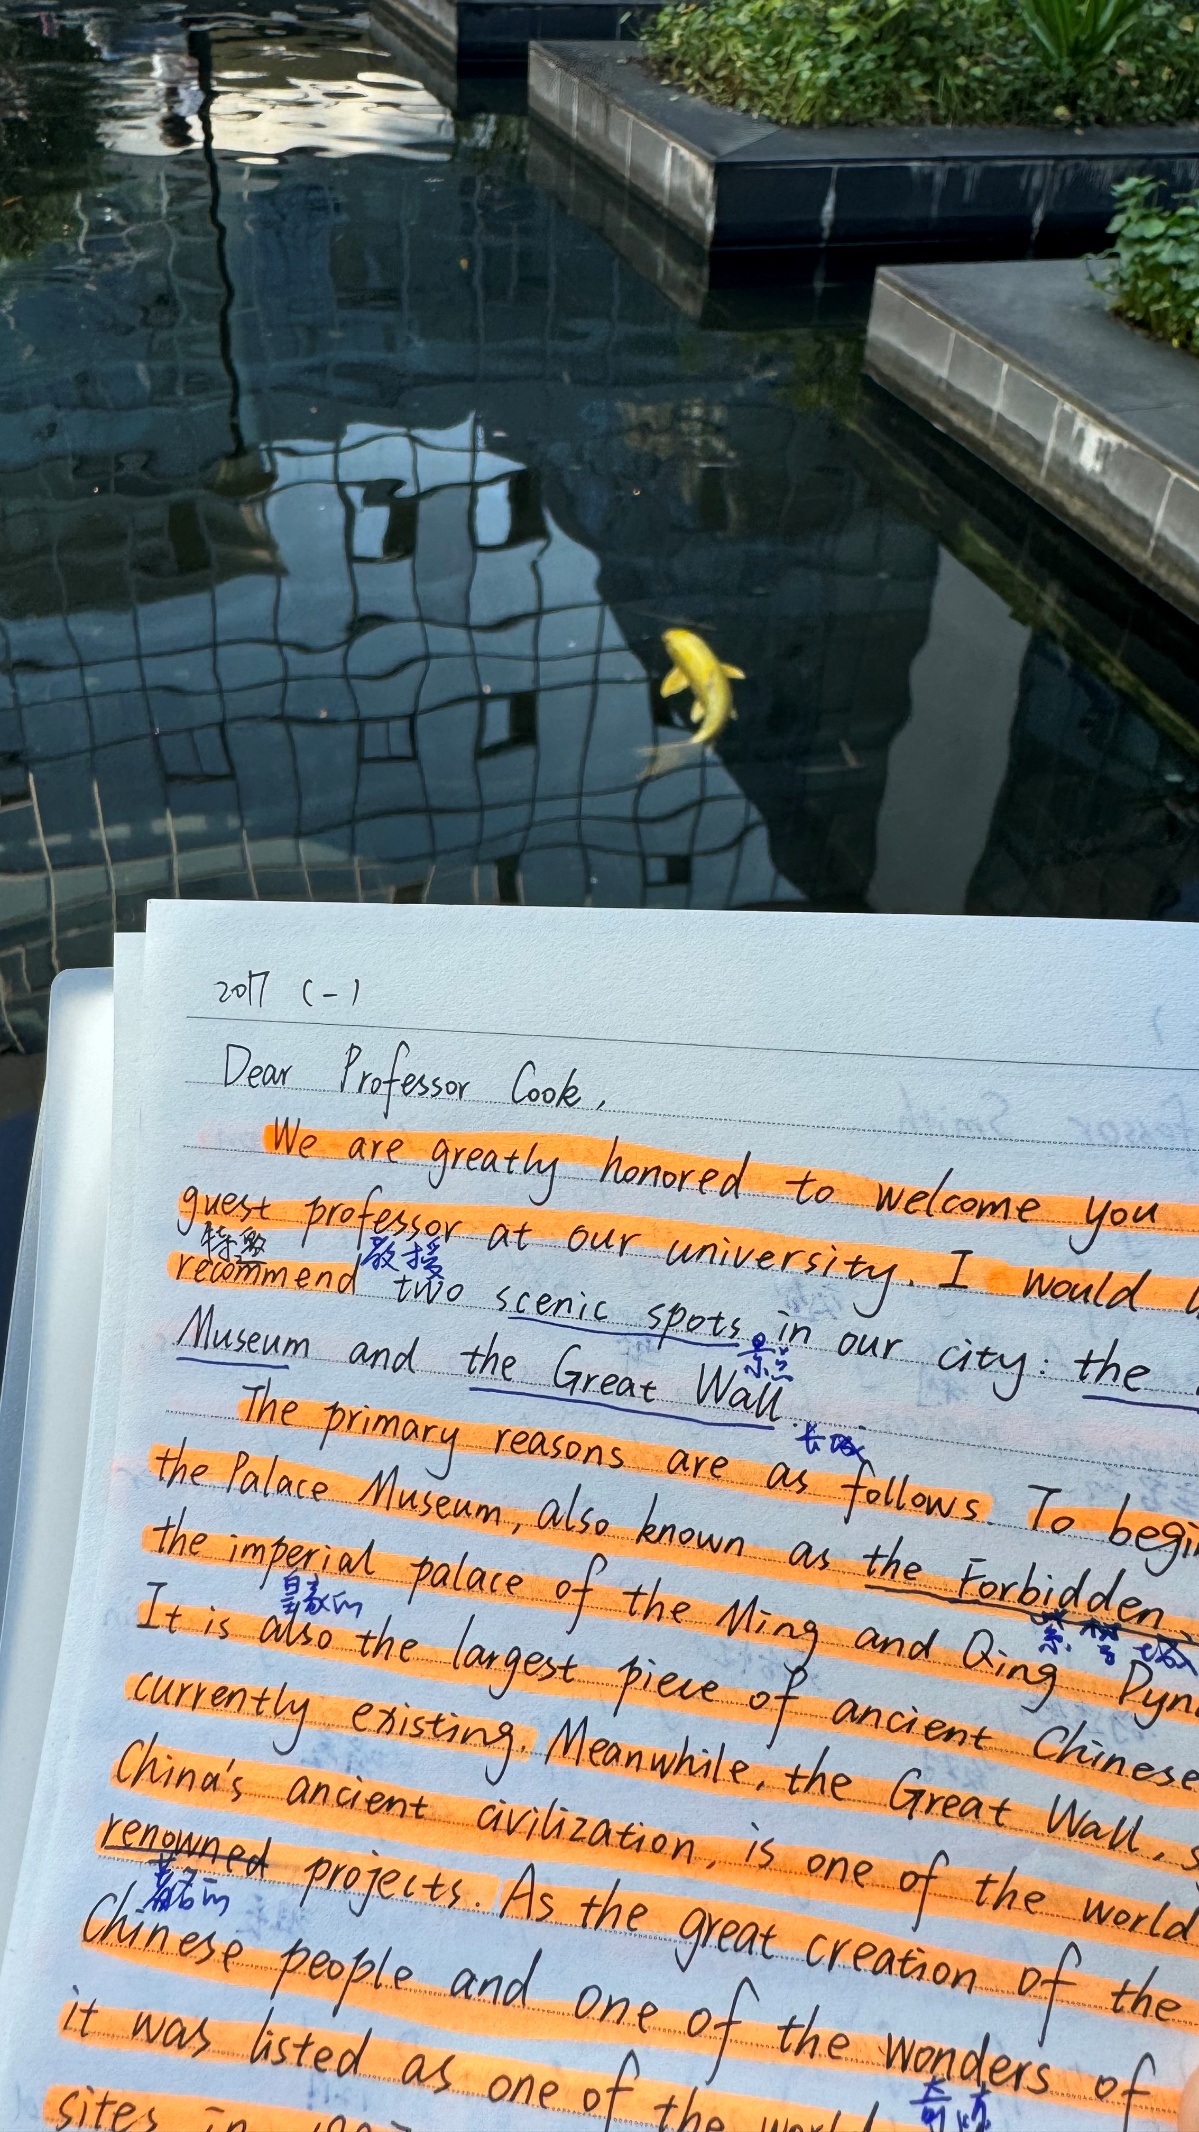 2017 (一)
Dear Professor Cook,
We are greatly honored to welcome you
guest professor at our university. I would
特邀 教授
recommend two scenic spots in our city: the
景点
Museum and the Great Wall.
长城
The primary reasons are as follows. To begi
the Palace Museum, also known as the Forbidden
紫禁城
the imperial palace of the Ming and Qing Dyn
皇家的
It is also the largest piece of ancient Chinese
currently existing. Meanwhile, the Great Wall, s
China's ancient civilization, is one of the world
renowned projects. As the great creation of the
著名的
Chinese people and one of the wonders of
奇迹
it was listed as one of the world
sites in